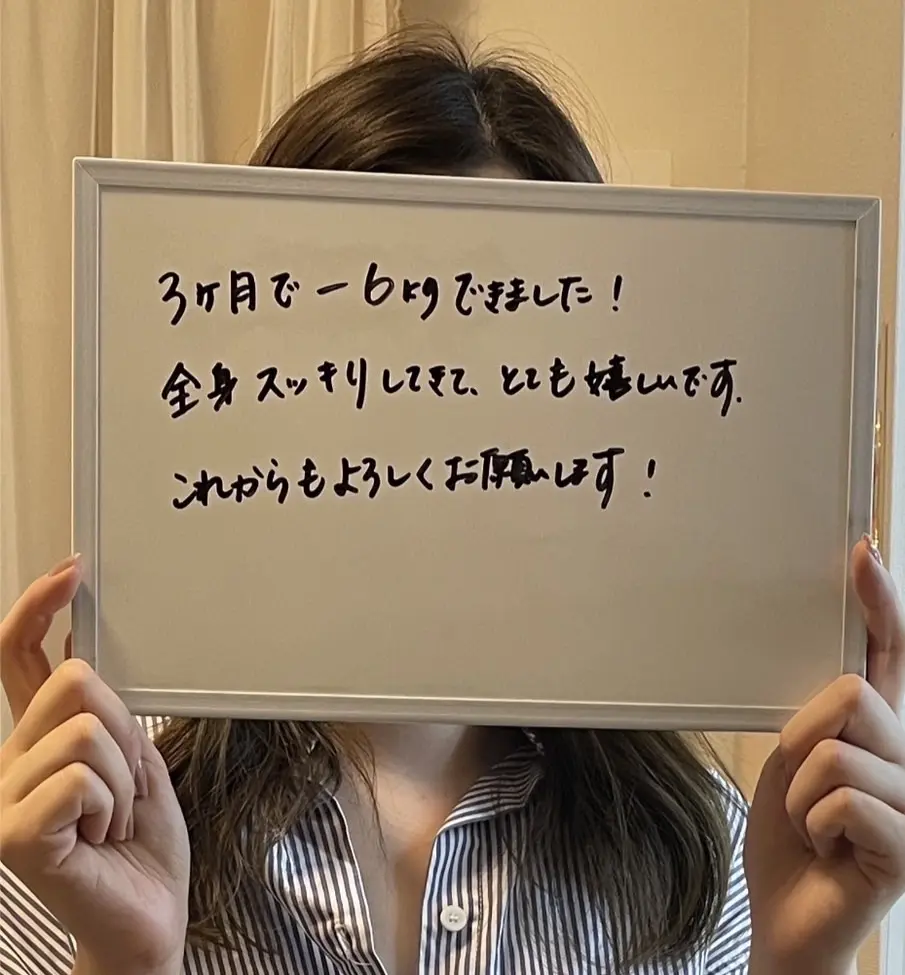 3ヶ月で−6kgできました！
全身スッキリしてきて、とても嬉しいです.
これからもよろしくお願いします！